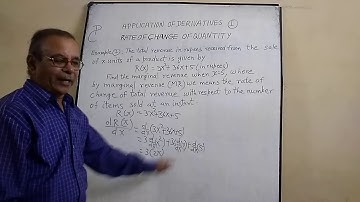 APPLICATION OF DERIVATIVES (1)
RATE OF CHANGE OF QUANTITY
Example (3): The total revenue in rupees received from the sale
of x units of a product is given by
R(x) = 3x² + 36x + 5 (in rupees)
Find the marginal revenue when x=5, where
by marginal revenue (MR) we mean the rate of
change of total revenue with respect to the number
of items sold at an instant
R(x) = 3x²+36x+5
dR(x)/dx = d/dx(3x²+36x+5)
= 3(2x)